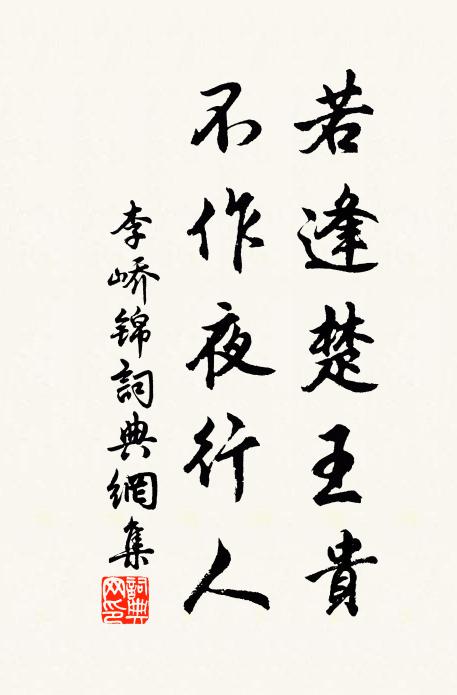 若逢楚王貴
不作夜行人
李峤锦詞典網集
詞典网印